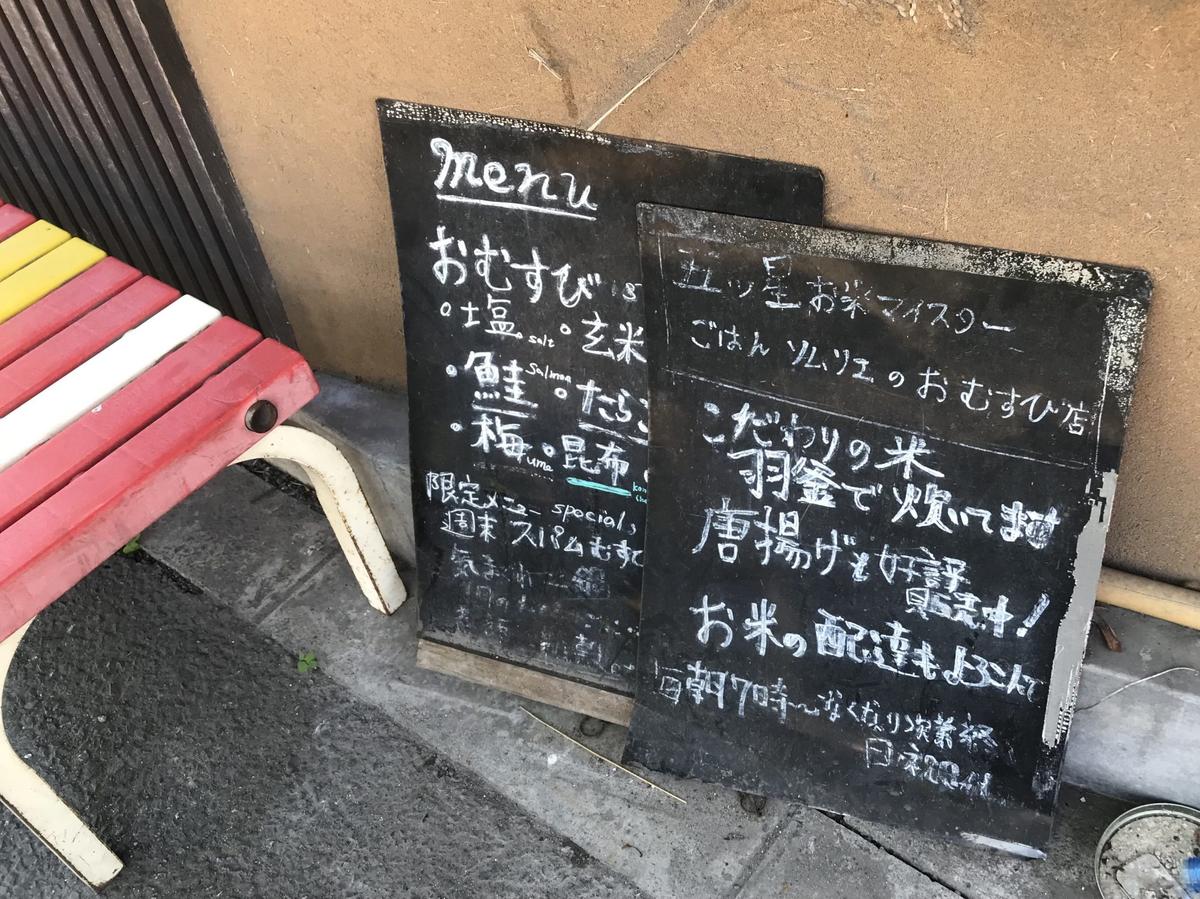 menu
おむすび
・塩 salt ・玄米
・鮭 salmon ・たらこ
・梅 ume ・昆布
限定メニュー specials
週末 スパムむすび
五ッ星お米マイスター
ごはんソムリエのおむすび店
こだわりの米
羽釜で炊いてます
唐揚げも好評
販売中!
お米の配達もよろこんで
朝7時〜なくなり次第終